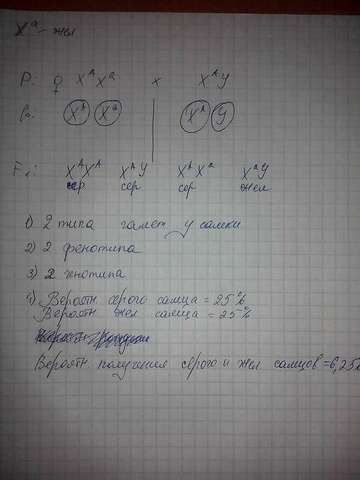 Xᵃ - жел
P: ♀ XᴬXᵃ x XᴬY
Xᴬ Xᵃ Xᴬ Y
F₁: XᴬXᴬ XᴬY XᴬXᵃ XᵃY
сер сер сер жел
1) 2 типа гамет у самки
2) 2 фенотипа
3) 2 генотипа
4) Вероятн серого самца = 25%
Вероятн жел самца = 25%
Вероятн. получения серого и жел. самцов = 6,25